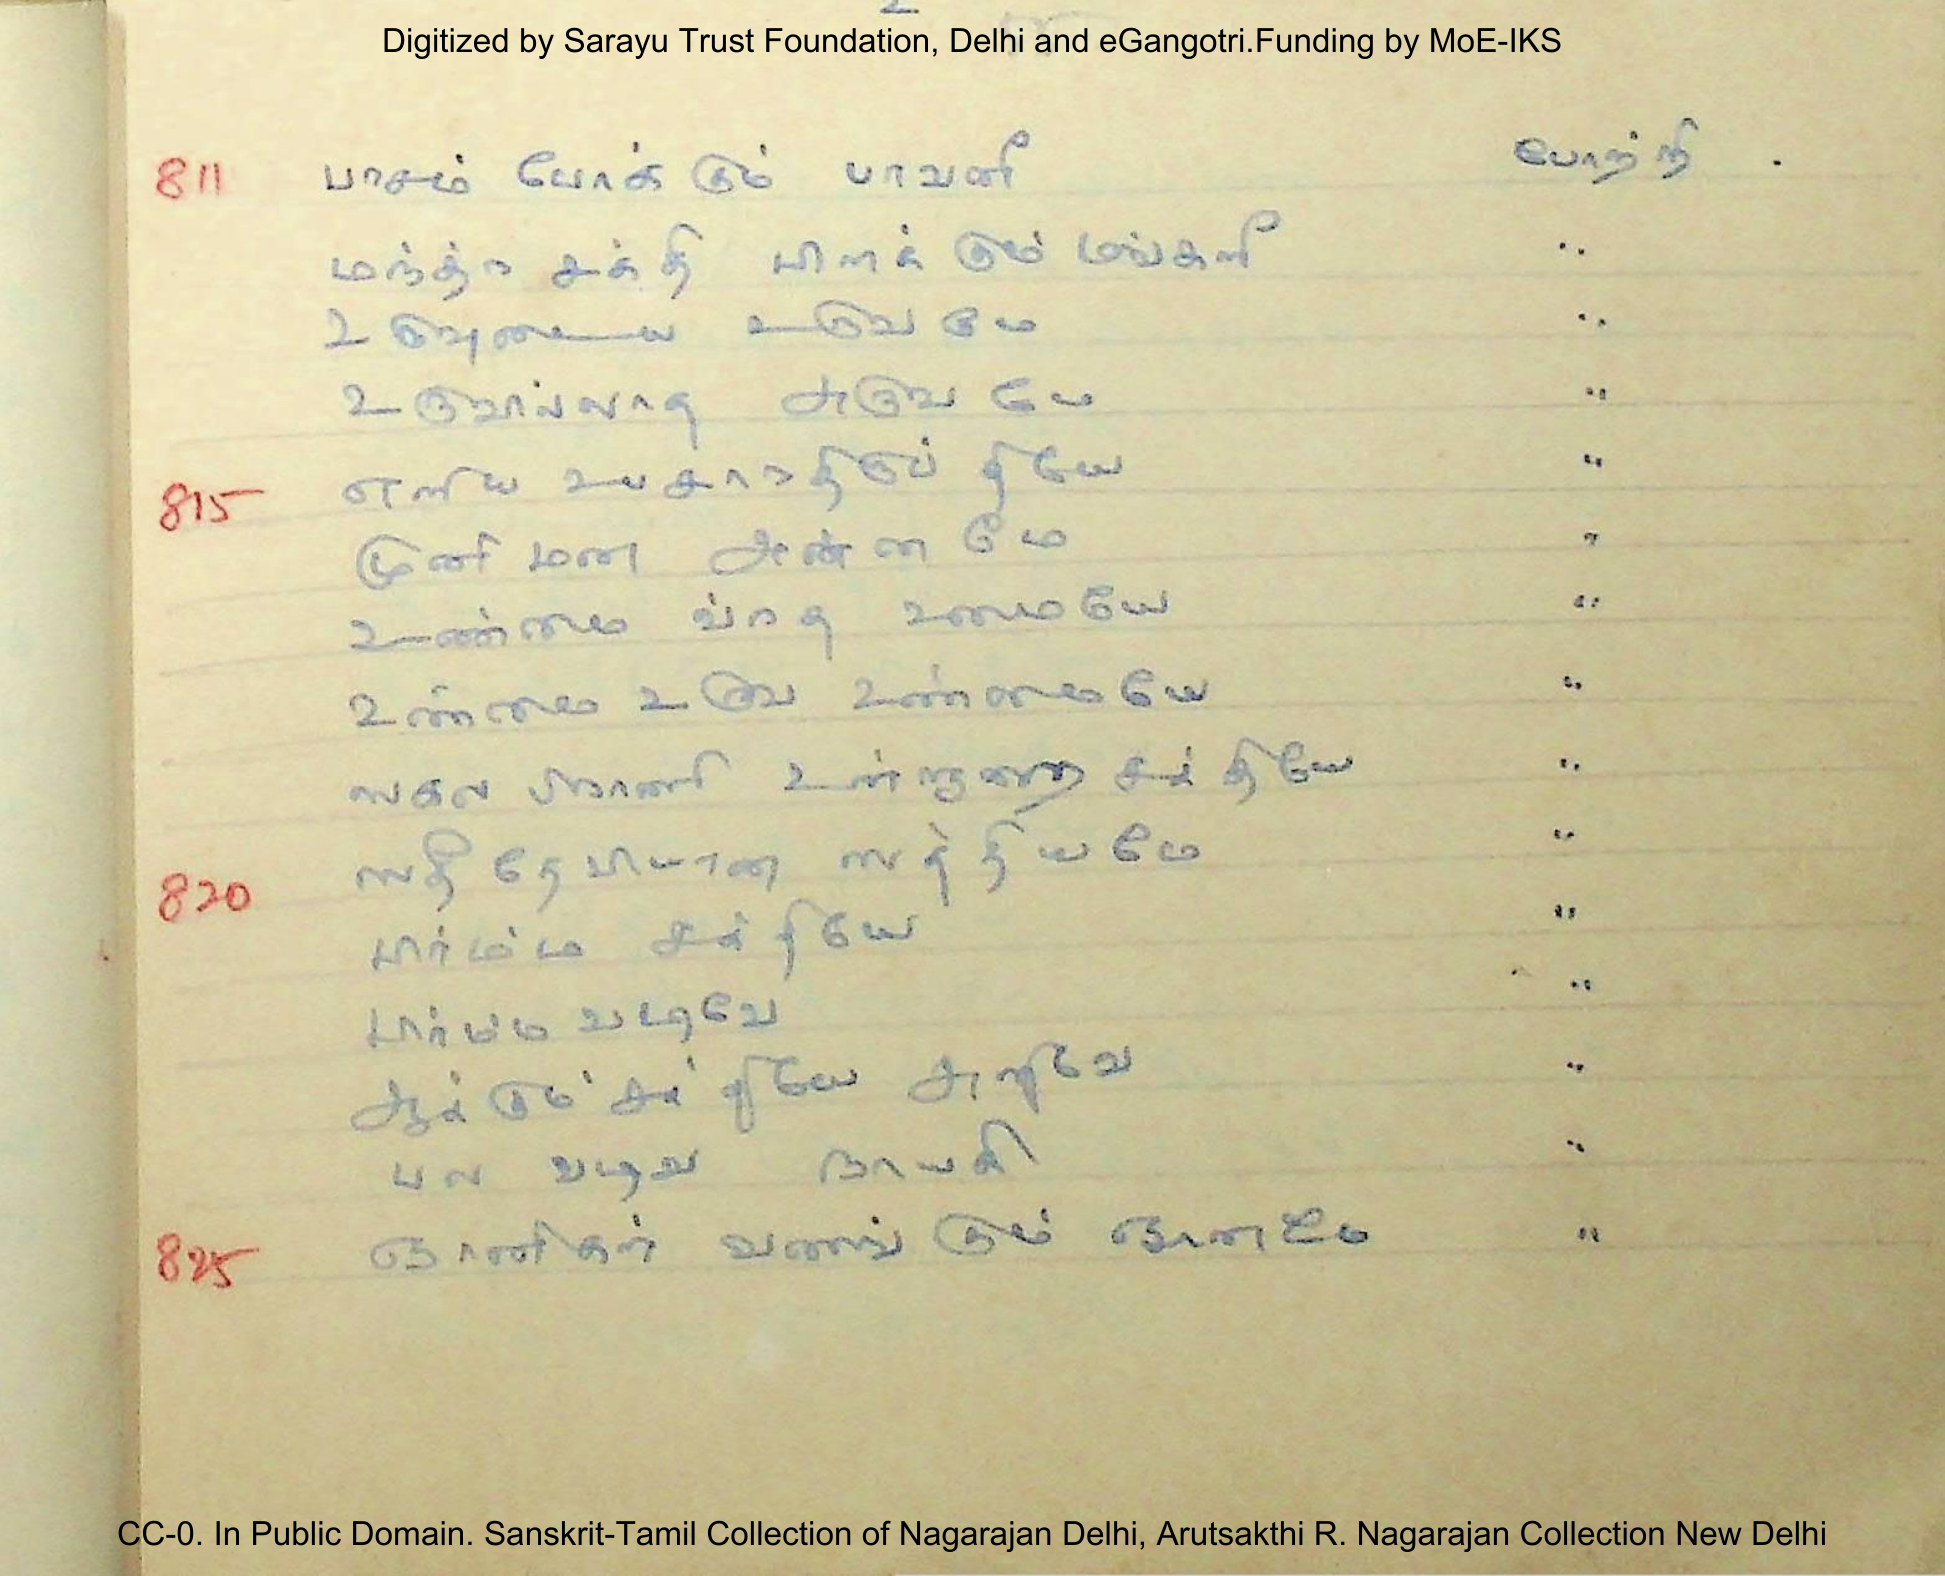 Digitized by Sarayu Trust Foundation, Delhi and eGangotri.Funding by MoE-IKS
811 பாசம் போக்கும் பாவனி போற்றி .
மந்த்ர சக்தி பிறக்கும் மங்களி "
உருவுடைய உருவமே "
உருவில்லாத அருவமே "
815 எளிய உபகாரத் "
முனி மன அன்னமே "
உண்மை உமையே "
உண்மை உரு உண்மையே "
ஸகல சக்தியே "
820 ஸதீ தேவியான ஸத்தியமே "
சக்தியே "
வடிவே "
ஆக்கும் சக்தியே அறிவே "
பல வடிவ நாயகி "
825 ஞானிகள் வணங்கும் ஞானமே "
CC-0. In Public Domain. Sanskrit-Tamil Collection of Nagarajan Delhi, Arutsakthi R. Nagarajan Collection New Delhi